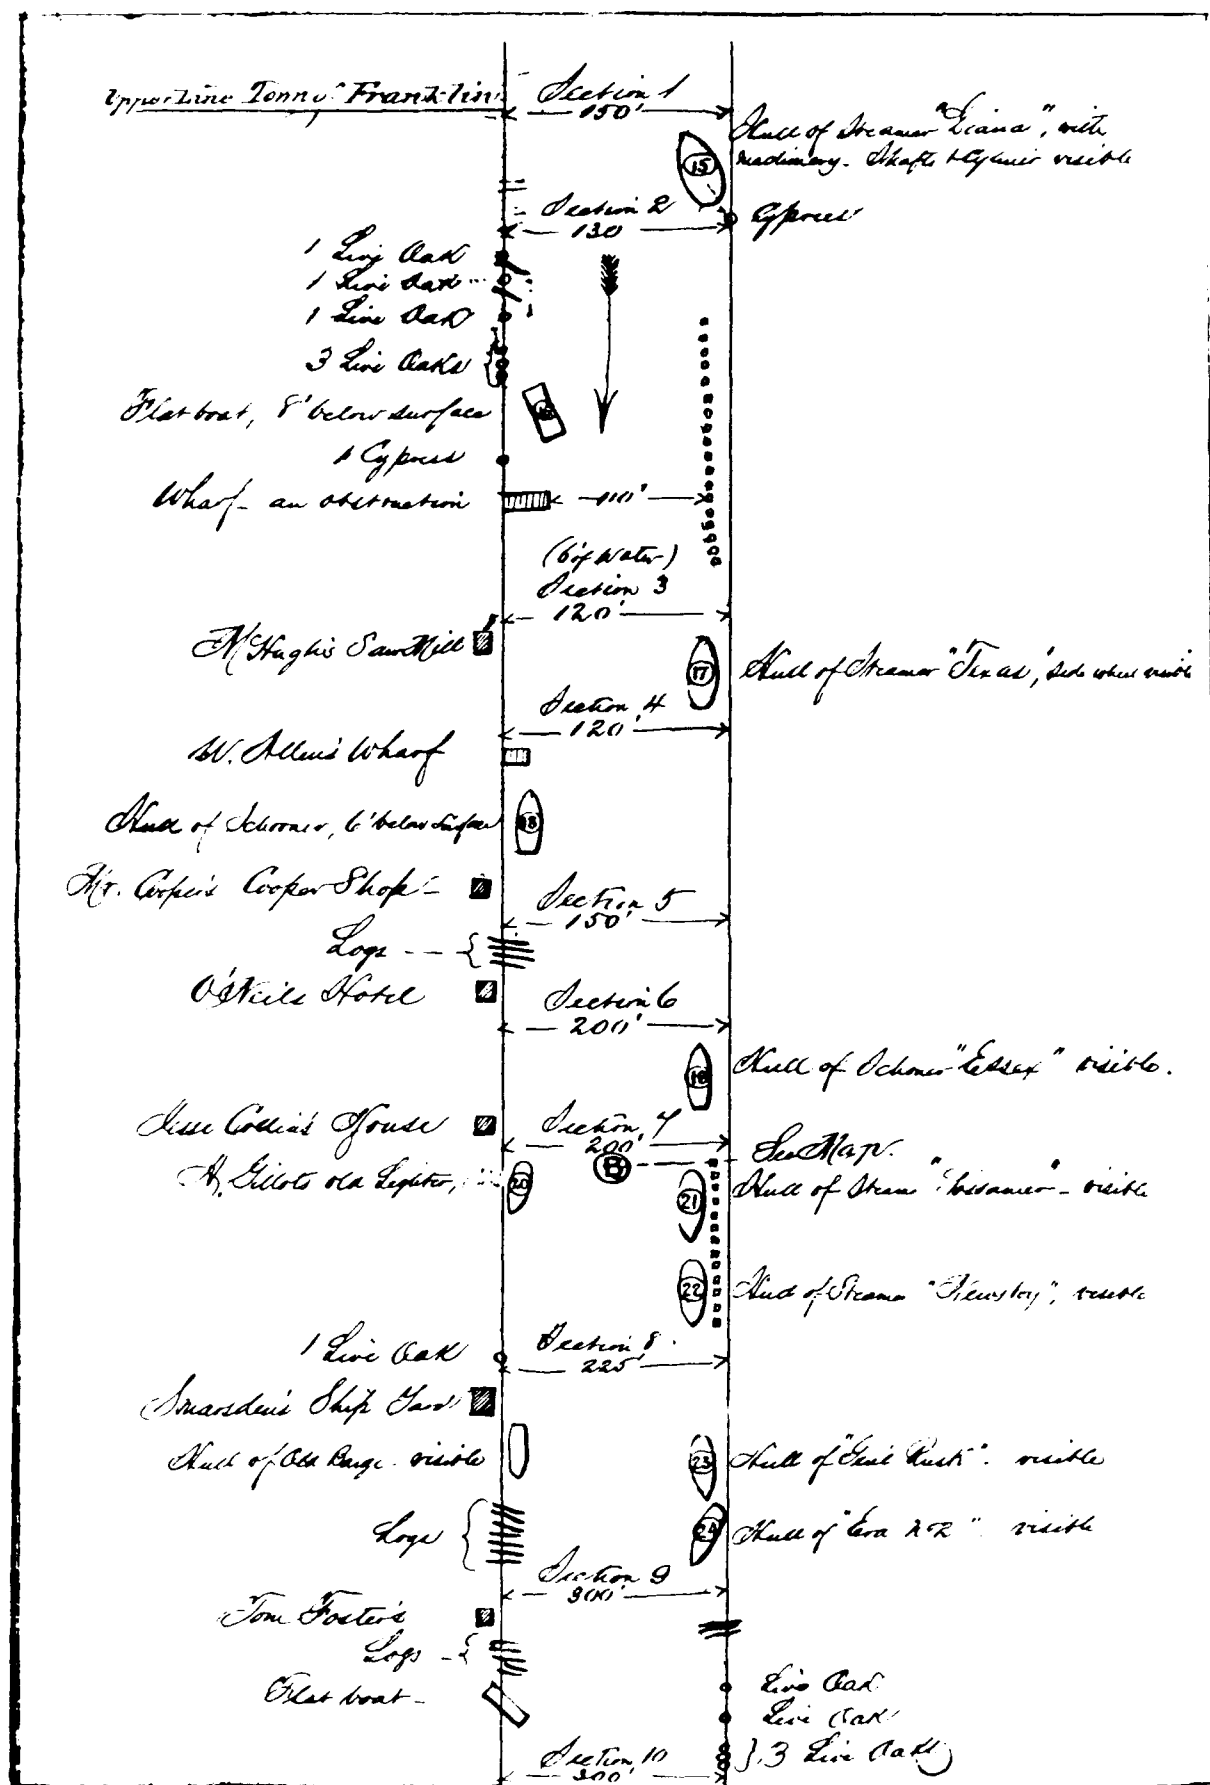 Upper Line Town of Franklin
Section 1
150'
Hull of Steamer "Diana", with
machinery. Shafts & Cylinder visible
15
Section 2
130
Cypress
1 Live Oak
1 Live Oak
1 Live Oak
3 Live Oaks
Flat boat, 8' below surface
16
1 Cypress
Wharf - an obstruction
110'
(6' of Water)
Section 3
120'
McHugh's Saw Mill
17
Hull of Steamer "Texas", side wheel visible
Section 4
120'
W. Allen's Wharf
Hull of Schooner, 6' below Surface
18
Mr. Cooper's Cooper Shop -
Section 5
150'
Logs
O'Neils Hotel
Section 6
200'
Hull of Schoner "Essex" visible.
Jesse Collin's House
Section 7
200'
B
See Map.
Old Lighter,
20
21
Hull of Steam " " - visible
22
Hull of Steamer " ", visible
1 Live Oak
Section 8
225'
Ship Yard
Hull of Old Barge visible
23
Hull of "Genl Rusk". visible
Logs
24
Hull of "Era No 2" visible
Section 9
300'
Tom Foster's
Logs
Flat boat -
Live Oak
Live Oak
3 Live Oaks
Section 10
300'